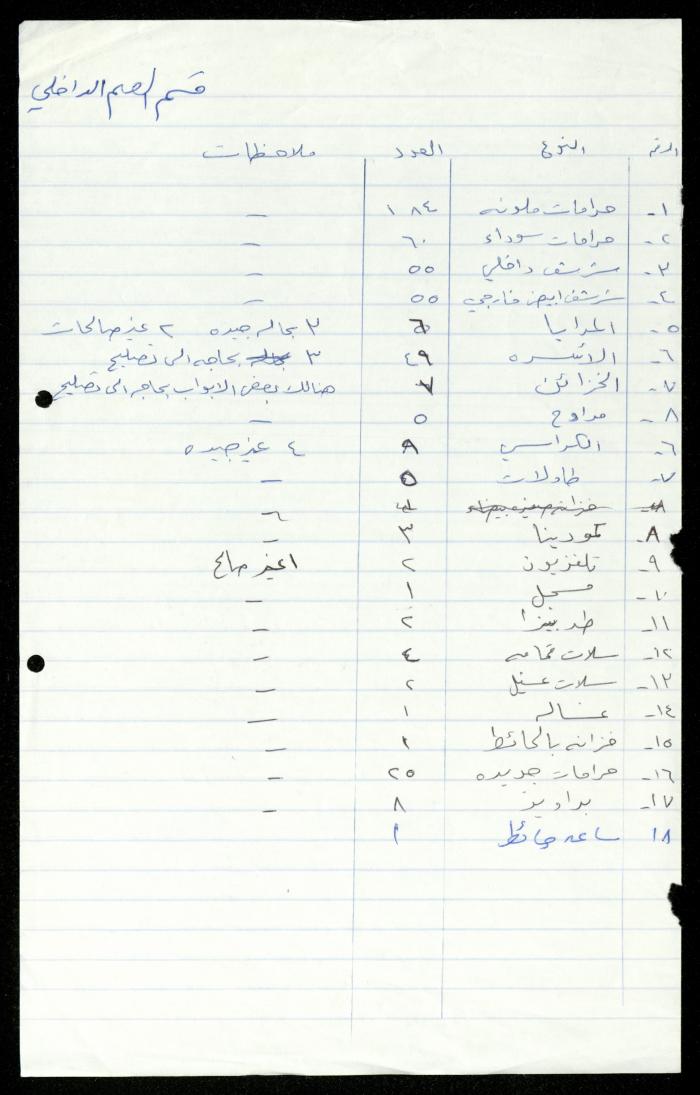 قسم الصم الداخلي
الرقم النوع العدد ملاحظات
١- حرامات ملونه ١٨٤ —
٢- حرامات سوداء ٦٠ —
٣- شرشف داخلي ٥٥ —
٤- شرشف ابيض خارجي ٥٥ —
٥- المرايا ٣ بحاله جيده ٢ غير صالحات
٦- الاسره ٤٩ ٣ بحاجه الى تصليح
٧- الخزائن ٧ هنالك بعض الابواب بحاجه الى تصليح
٨- مراوح ٥ —
٦- الكراسي ٨ ٤ غير جيده
٧- طاولات ٥ —
٨- كمودينا ٣ —
٩- تلفزيون ٢ ١ غير صالح
١٠- مسجل ١ —
١١- طربيزا ٢ —
١٢- سلات قمامه ٤ —
١٣- سلات غسيل ٢ —
١٤- غساله ١ —
١٥- خزانه بالحائط ٢ —
١٦- حرامات جديده ٢٥ —
١٧- براويز ٨ —
١٨ ساعه حائط ١